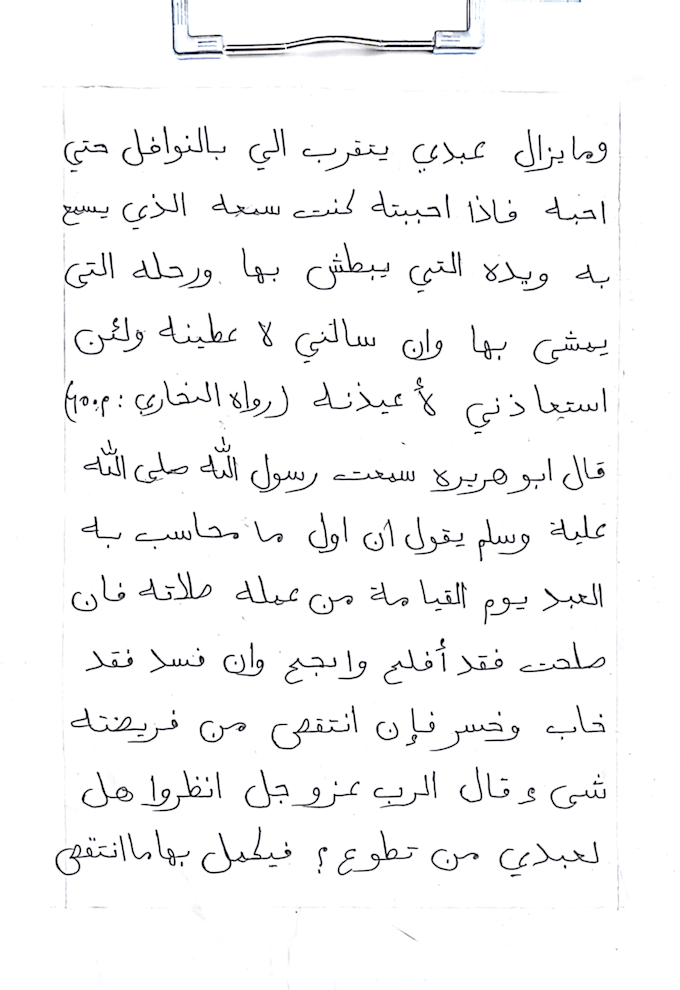 ومايزال عبدي يتقرب الي بالنوافل حتي
احبه فاذا احببته كنت سمعه الذي يسمع
به ويده التي يبطش بها ورحله التي
يمشي بها وان سالني لا عطينه ولئن
استعاذني لأعيذنه (رواه البخاري :
قال ابو هريره سمعت رسول الله صلى الله
علية وسلم يقول ان اول ما محاسب به
العبد يوم القيامة من عمله صلاته فان
صلحت فقد أفلح وانجح وان فسد فقد
خاب وخسر فإن انتقص من فريضته
شىء قال الرب عزوجل انظروا هل
لعبدي من تطوع؟ فيكمل بها ماانتقص